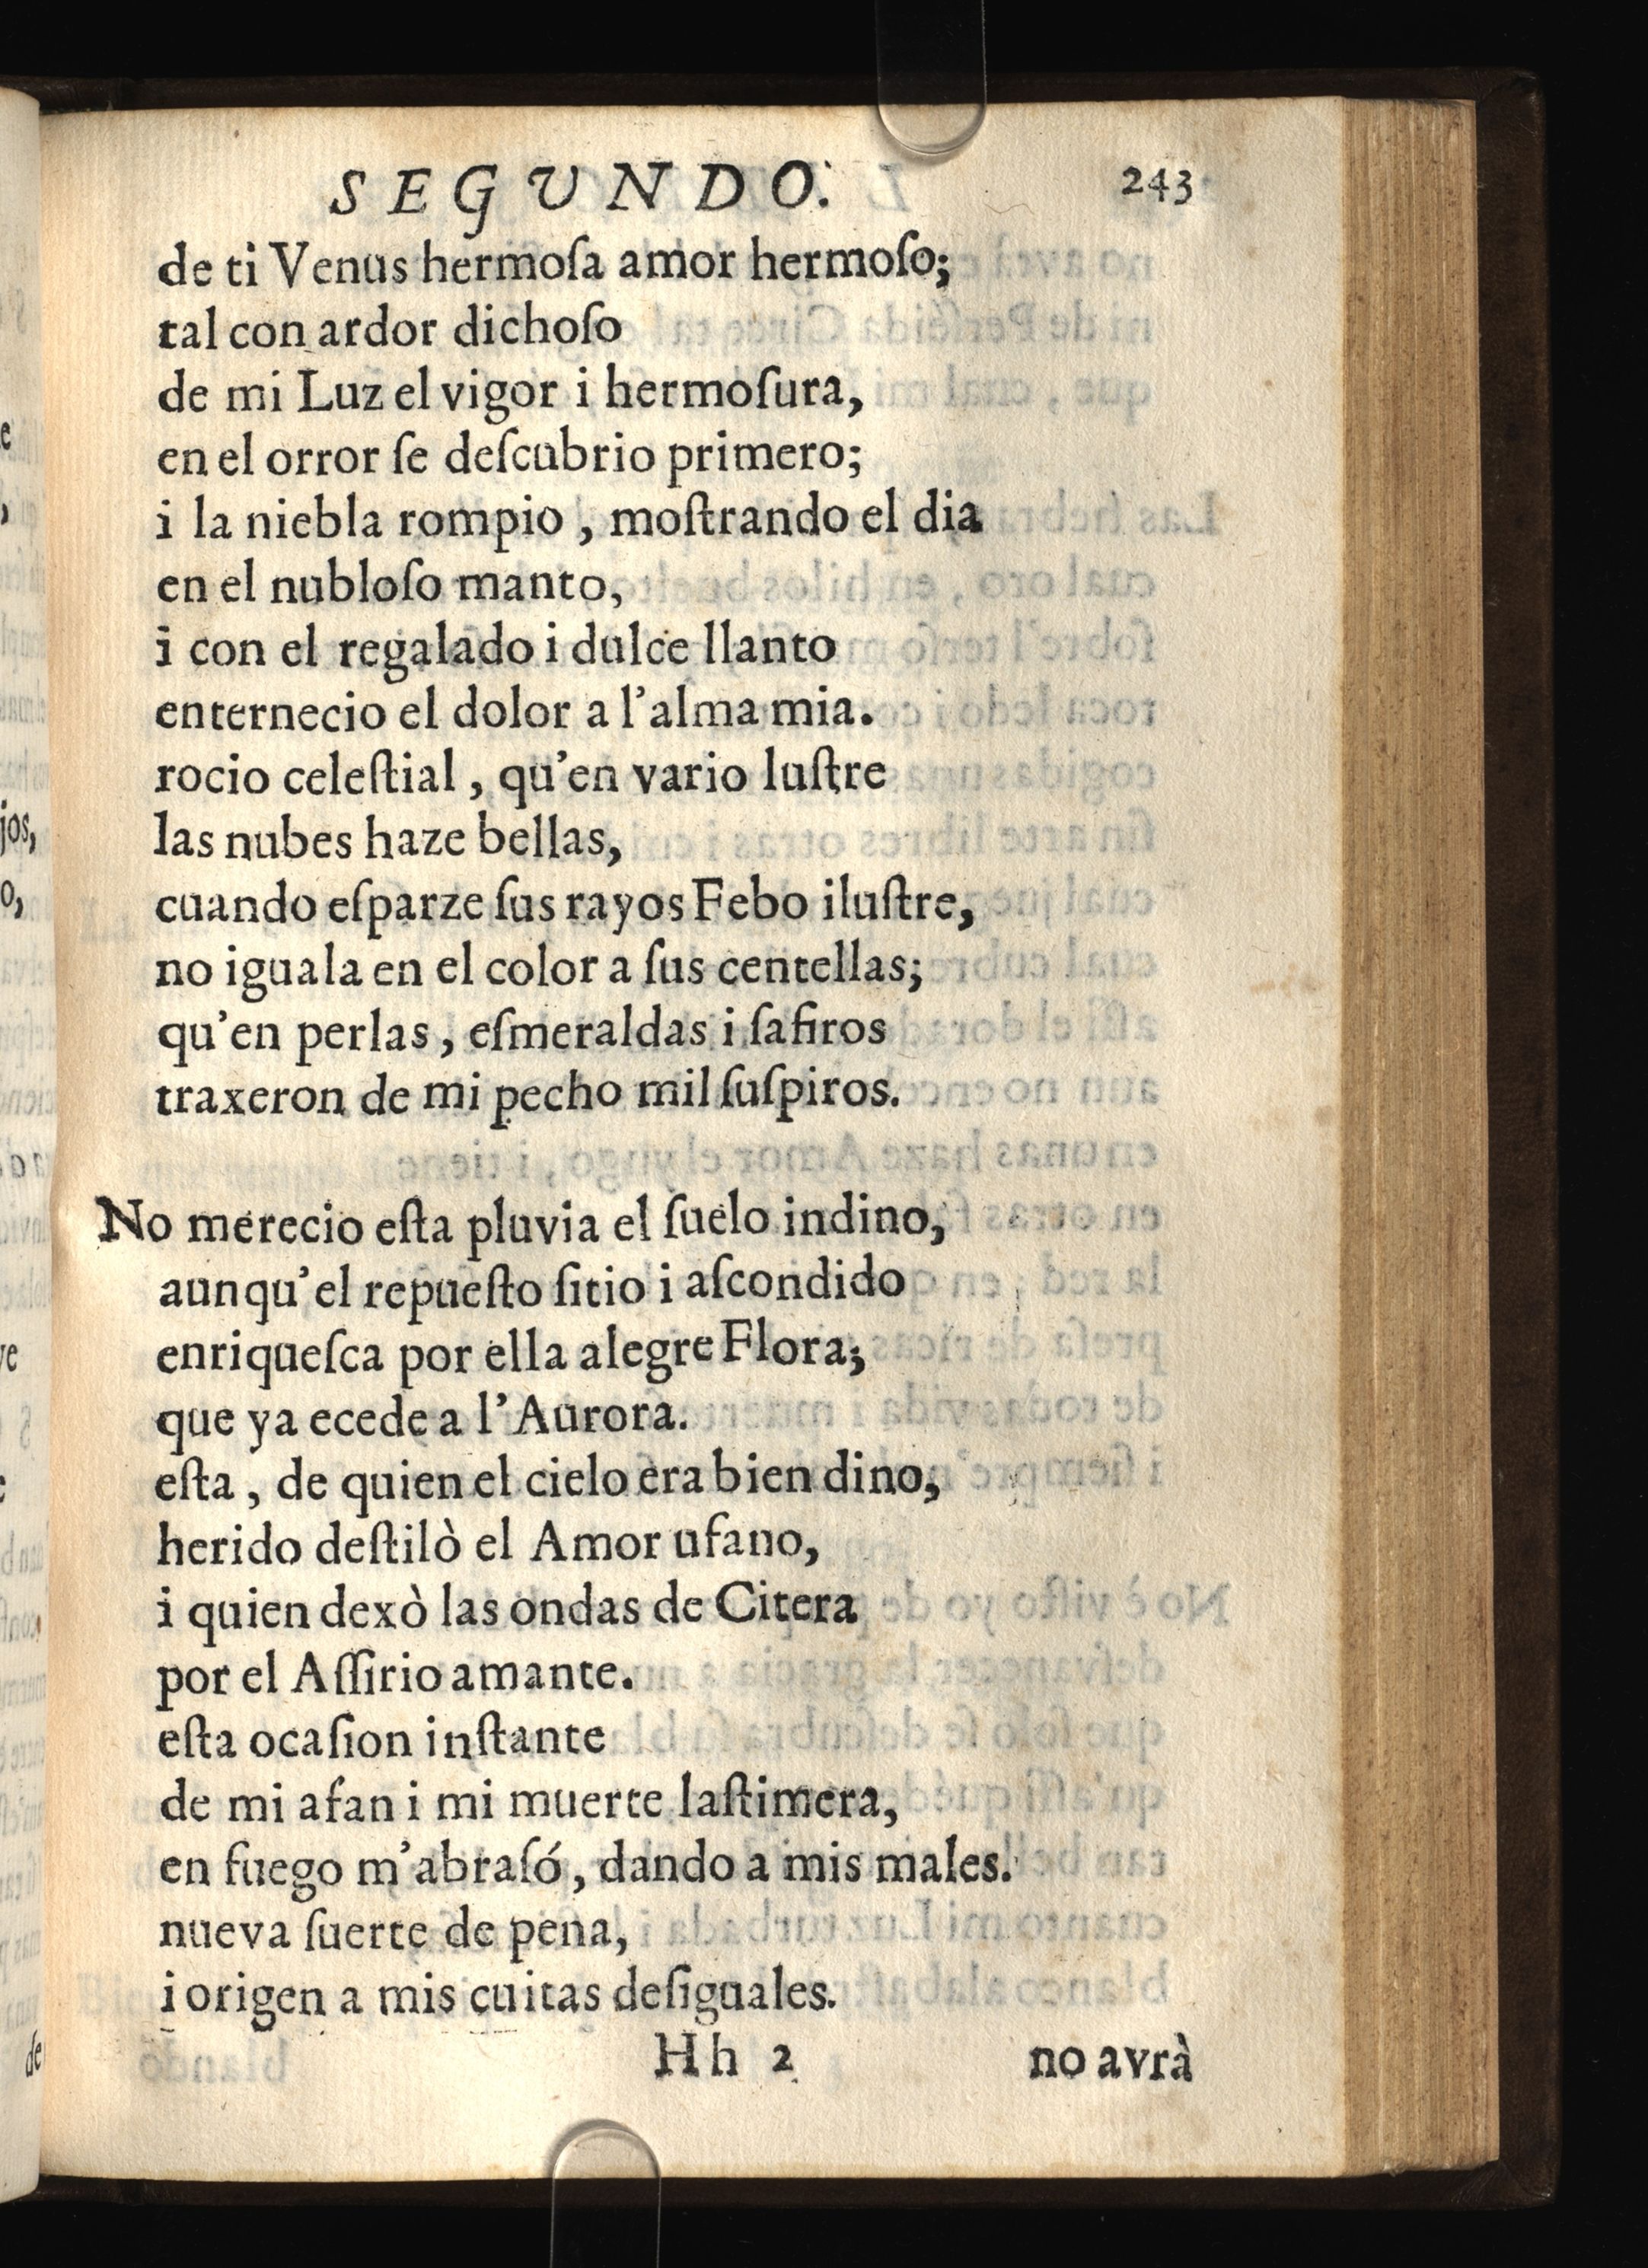 SEGUNDO. 243
de ti Venus hermoſa amor hermoſo;
tal con ardor dichoſo
de mi Luz el vigor i hermoſura,
en el orror ſe deſcubrio primero;
i la niebla rompio, moſtrando el dia
en el nubloſo manto,
i con el regalado i dulce llanto
enternecio el dolor a l'alma mia.
rocio celeſtial, qu'en vario luſtre
las nubes haze bellas,
cuando eſparze ſus rayos Febo iluſtre,
no iguala en el color a ſus centellas;
qu'en perlas, eſmeraldas i ſafiros
traxeron de mi pecho mil ſuſpiros.
No merecio eſta pluvia el ſuelo indino,
aunqu'el repueſto ſitio i aſcondido
enriqueſca por ella alegre Flora;
que ya ecede a l'Aurora.
eſta, de quien el cielo era bien dino,
herido deſtilò el Amor ufano,
i quien dexò las ondas de Citera
por el Aſſirio amante.
eſta ocaſion inſtante
de mi afan i mi muerte laſtimera,
en fuego m'abraſó, dando a mis males.
nueva ſuerte de pena,
i origen a mis cuitas deſiguales.
Hh 2 no avrà